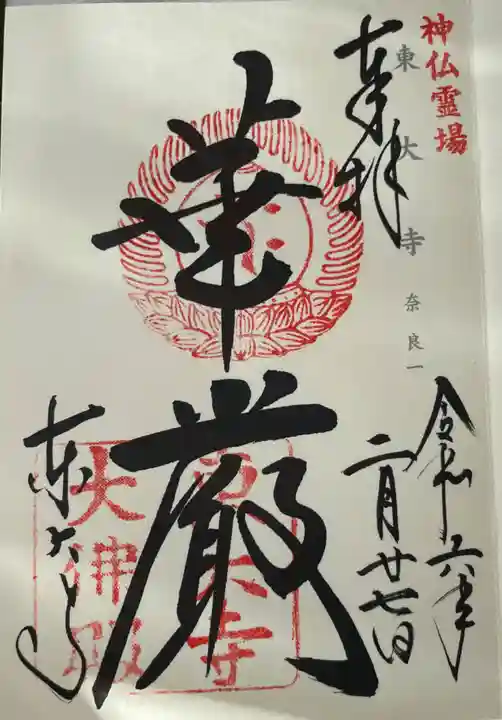 神仏霊場
東大寺 奈良一
奉拝
令和六年
二月廿七日
華厳
東大寺
東大寺
大佛殿